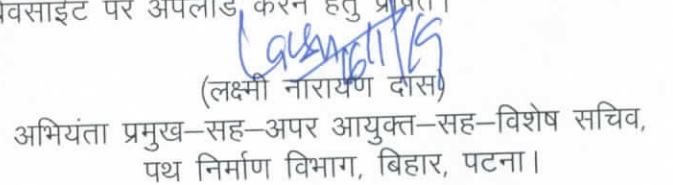 वेबसाईट पर अपलोड करने हेतु प्रेषित।
(लक्ष्मी नारायण दास)
अभियंता प्रमुख–सह–अपर आयुक्त–सह–विशेष सचिव,
पथ निर्माण विभाग, बिहार, पटना।